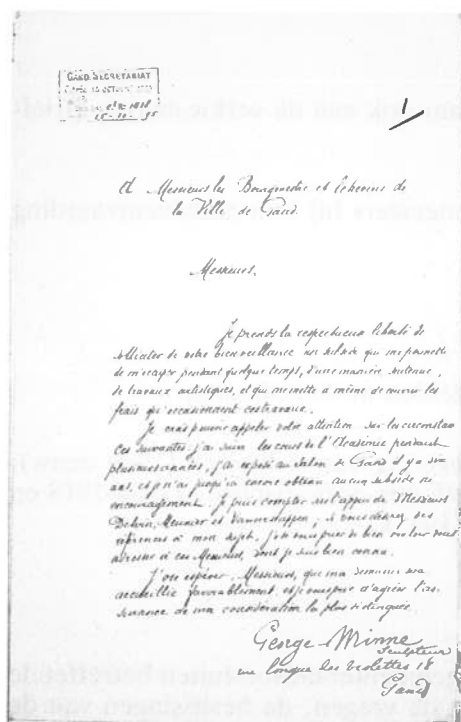 GAND. SECRETARIAT
15 OCTOBRE
1
A Messieurs les Bourgmestre et Echevins de
la Ville de Gand.
Messieurs,
Je prends la respectueuse liberté de
solliciter de votre bienveillance un subside qui me permette
de m'occuper pendant quelque temps, d'une manière soutenue,
de travaux artistiques, et qui me mette à même de couvrir les
frais qu'occasionnent ces travaux.
Je crois pouvoir appeler votre attention sur les circonstan
ces suivantes: j'ai suivi les cours de l'Académie pendant
plusieurs années, j'ai exposé au Salon de Gand il y a six
ans, et je n'ai jusqu'à encore obtenu aucun subside ni
encouragement. Je puis compter sur l'appui de Messieurs
Delvin, Meunier et Vanneste; si vous désirez des
références à mon sujet, je vous prier de bien vouloir vous
adresser à ces Messieurs, dont je suis bien connu.
J'ose espérer, Messieurs, que ma demande sera
accueillie favorablement, et je vous prie d'agréer l'as-
surance de ma considération la plus distinguée.
George Minne
Sculpteur
rue longue les violettes 18
Gand